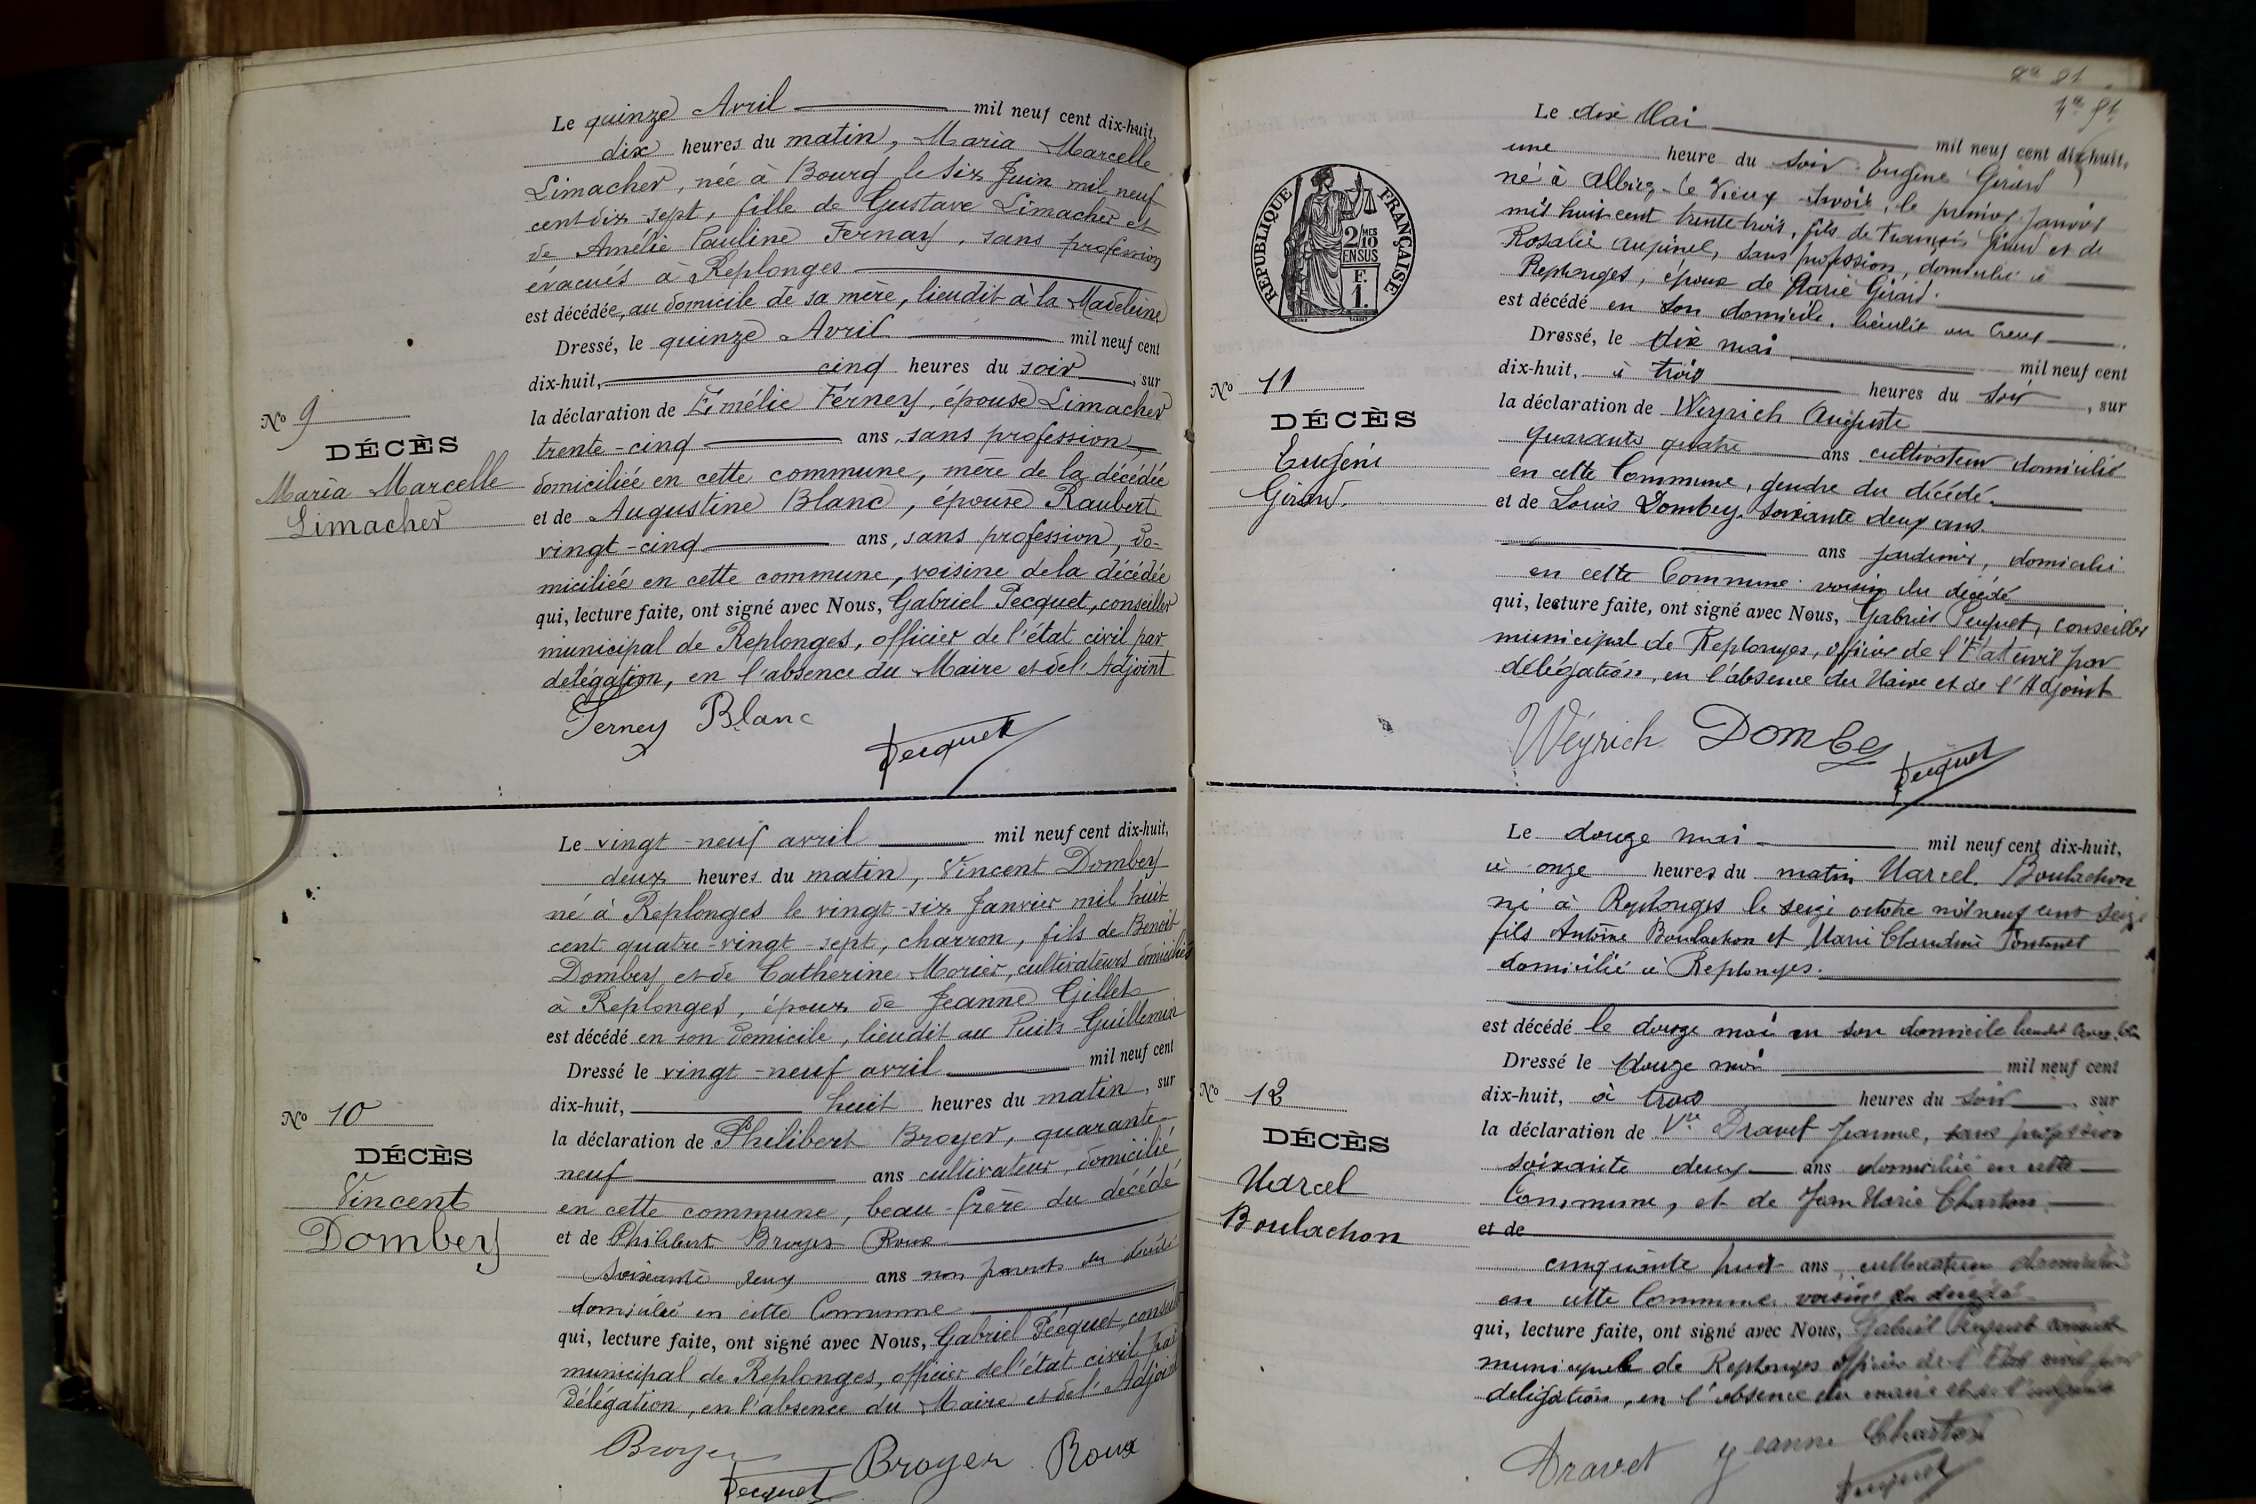 Le quinze Avril mil neuf cent dix-huit,
dix heures du matin, Maria Marcelle
Limacher, née à Bourg le six Juin mil neuf
cent dix-sept, fille de Gustave Limacher et
de Amélie Pauline Fernay, sans profession
évacués à Replonges
est décédée, au domicile de sa mère, lieudit à la Madeleine
Dressé, le quinze Avril mil neuf cent
dix-huit, cinq heures du soir, sur
la déclaration de Emélie Ferney, épouse Limacher
trente-cinq ans, sans profession,
domiciliée en cette commune, mère de la décédée
et de Augustine Blanc, épouse Raubert
vingt-cinq ans, sans profession, do-
miciliée en cette commune, voisine de la décédée
qui, lecture faite, ont signé avec Nous, Gabriel Pecquet, conseiller
municipal de Replonges, officier de l'état civil par
délégation, en l'absence du Maire et de l'Adjoint
Ferney Blanc
Pecquet
No 9
DÉCÈS
Maria Marcelle
Limacher
Le vingt-neuf avril mil neuf cent dix-huit,
deux heures du matin, Vincent Dombey
né à Replonges le vingt-six Janvier mil huit
cent quatre-vingt-sept, charron, fils de Benoit
Dombey et de Catherine Morier, cultivateurs domiciliés
à Replonges, époux de Jeanne Gillet
est décédé en son domicile, lieudit au Puits-Guillemin
Dressé le vingt-neuf avril mil neuf cent
dix-huit, huit heures du matin, sur
la déclaration de Philibert Broyer, quarante-
neuf ans cultivateur, domicilié
en cette commune, beau-frère du décédé
et de Philibert Broyer Roux
soixante deux ans non parent du décédé
domicilié en cette Commune
qui, lecture faite, ont signé avec Nous, Gabriel Pecquet, conseiller
municipal de Replonges, officier de l'état civil par
délégation, en l'absence du Maire et de l'Adjoint
Broyer Broyer Roux
Pecquet
No 10
DÉCÈS
Vincent
Dombey
Le dix Mai mil neuf cent dix-huit,
une heure du soir Eugène Girard
né à Albiez-le Vieux Savoie, le premier Janvier
mil huit cent trente trois, fils de François Girard et de
Rosalie, sans profession, domicilié à
Replonges, époux de Marie Girard
est décédé en son domicile, lieudit au Creux
Dressé, le dix mai mil neuf cent
dix-huit, à trois heures du soir, sur
la déclaration de Weyrich Auguste
quarante quatre ans cultivateur domicilié
en cette Commune, gendre du décédé
et de Louis Dombey soixante deux ans
ans jardinier, domicilié
en cette Commune voisin du décédé
qui, lecture faite, ont signé avec Nous, Gabriel Pecquet, conseiller
municipal de Replonges, officier de l'Etat civil par
délégation, en l'absence du Maire et de l'Adjoint
Weyrich Dombey
Pecquet
RÉPUBLIQUE FRANÇAISE
2/10 MES
EN SUS
F.
1.
No 11
DÉCÈS
Eugène
Girard.
Le douze mai mil neuf cent dix-huit,
à onze heures du matin Marcel Boulachon
né à Replonges le seize octobre mil neuf cent seize
fils Antoine Boulachon et Marie Claudine
domicilié à Replonges.
est décédé le douze mai en son domicile lieudit
Dressé le douze mai mil neuf cent
dix-huit, à trois heures du soir, sur
la déclaration de Vve Dravet Jeanne, sans profession
soixante deux ans domiciliée en cette
Commune, et de Jean Marie Charton
et de
cinquante huit ans, cultivateur domicilié
en cette Commune voisins du décédé
qui, lecture faite, ont signé avec Nous, Gabriel Pecquet conseiller
municipal de Replonges officier de l'Etat civil par
délégation, en l'absence du maire et de l'adjoint
Dravet Jeanne Charton
Pecquet
No 12
DÉCÈS
Marcel
Boulachon